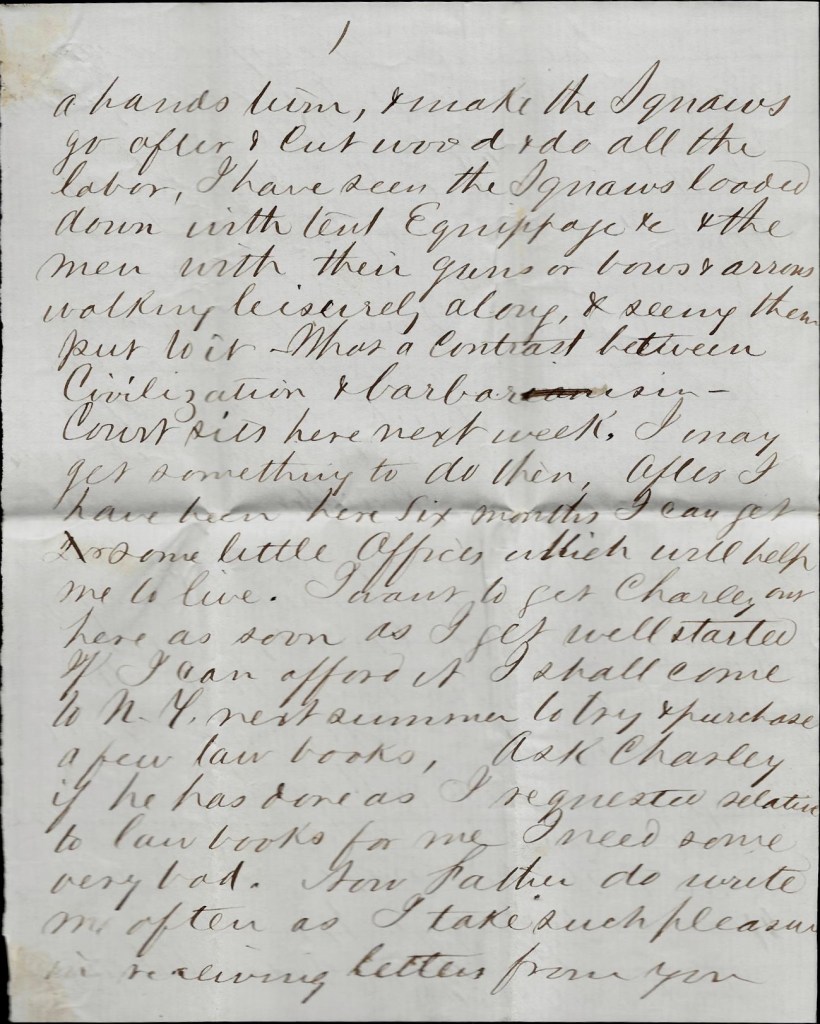 1
a hands turn, & make the Squaws
go after & Cut wood & do all the
labor, I have seen the Squaws loaded
down with tent Equippage &c & the
men with their guns or bows & arrows
walking leisurely along, & seeing them
put to it - What a Contrast between
Civilization & barbarism -
Court sits here next week. I may
get something to do then, After I
have been here Six months I can get
some little Offices which will help
me to live. I want to get Charley out
here as soon as I get well started
If I can afford it I shall come
to N.Y. next summer to try & purchase
a few law books, Ask Charley
if he has done as I requested relative
to law books for me I need some
very bad. Now Father do write
me often as I take such pleasure
in receiving letters from you